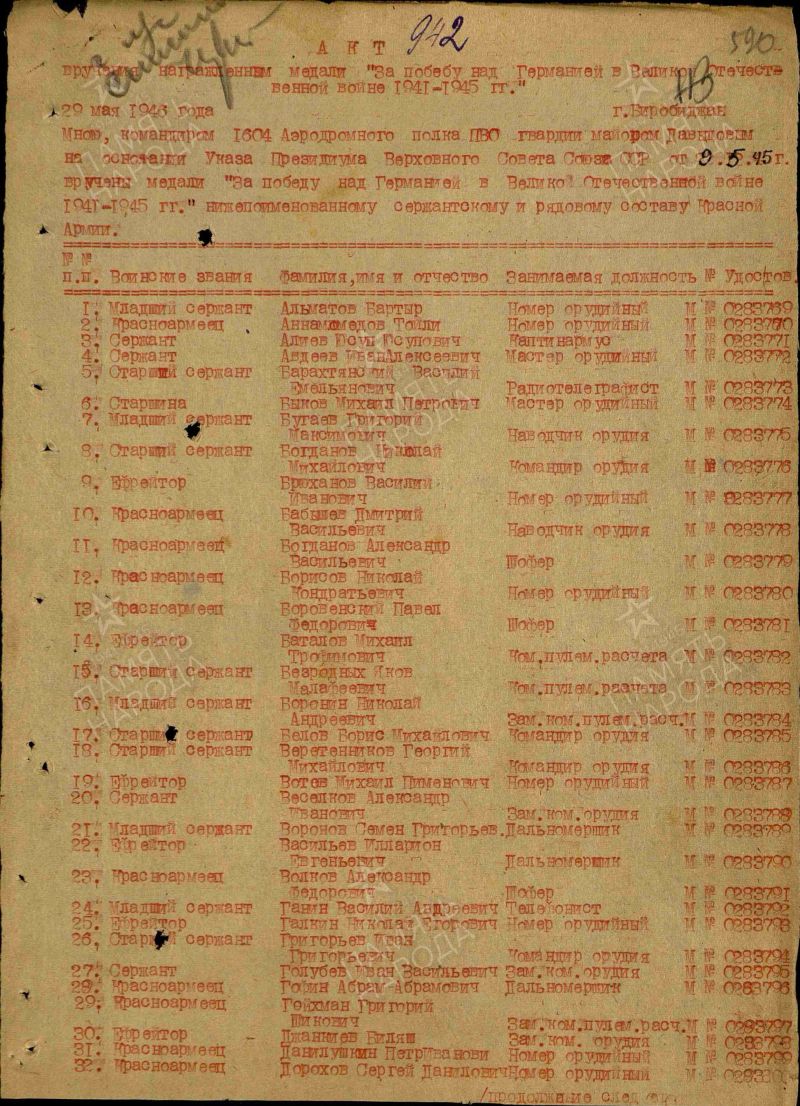 АКТ 942 590
вручения награжденным медали "За победу над Германией в Великой Отечест-
венной войне 1941-1945 гг."
29 мая 1946 года г.Биробиджан
Мною, командиром 1604 Аэродромного полка ПВО гвардии майором Давидовым
на основании Указа Президиума Верховного Совета Союза ССР от 9.5.45 г.
вручены медали "За победу над Германией в Великой Отечественной войне
1941-1945 гг." нижепоименованному сержантскому и рядовому составу Красной
Армии.
№ №
п.п. Воинские звания Фамилия,имя и отчество Занимаемая должность № Удостов.
1. Младший сержант Альматов Бартыр Номер орудийный М № 0283769
2. Красноармеец Аннамамедов Тойли Номер орудийный М № 0283770
3. Сержант Алиев Юсуп Юсупович Каптинармус М № 0283771
4. Сержант Авдеев ИванАлексеевич Мастер орудийный М № 0283772
5. Старший сержант Барахтянский Василий
Емельянович Радиотелеграфист М № 0283773
6. Старшина Быков Михаил Петрович Мастер орудийный М № 0283774
7. Младший сержант Бугаев Григорий
Максимович Наводчик орудия М № 0283775
8. Старший сержант Богданов Николай
Михайлович Командир орудия М № 0283776
9. Ефрейтор Брюханов Василий
Иванович Номер орудийный М № 0283777
10. Красноармеец Бабышев Дмитрий
Васильевич Наводчик орудия М № 0283778
11. Красноармеец Богданов Александр
Васильевич Шофер М № 0283779
12. Красноармеец Борисов Николай
Кондратьевич Номер орудийный М № 0283780
13. Красноармеец Боровенский Павел
Федорович Шофер М № 0283781
14. Ефрейтор Баталов Михаил
Трофимович Ком.пулем.расчета М № 0283782
15. Старший сержант Безродных Яков
Малафеевич Ком.пулем.расчета М № 0283783
16. Младший сержант Воронин Николай
Андреевич Зам.ком.пулем.расч.М № 0283784
17. Старший сержант Белов Борис Михайлович Командир орудия М № 0283785
18. Старший сержант Веретенников Георгий
Михайлович Командир орудия М № 0283786
19. Ефрейтор Вотев Михаил Пименович Номер орудийный М № 0283787
20. Сержант Веселков Александр
Иванович Зам.ком.орудия М № 0283788
21. Младший сержант Воронов Семен Григорьев.Дальномерщик М № 0283789
22. Ефрейтор Васильев Илларион
Евгеньевич Дальномерщик М № 0283790
23. Красноармеец Волков Александр
Федорович Шофер М № 0283791
24. Младший сержант Ганин Василий Андреевич Телефонист М № 0283792
25. Ефрейтор Галкин Николай Егорович Номер орудийный М № 0283793
26. Старший сержант Григорьев Иван
Григорьевич Командир орудия М № 0283794
27. Сержант Голубев Иван Васильевич Зам.ком.орудия М № 0283795
29. Красноармеец Гофин Абрам Абрамович Дальномерщик М № 0283796
29. Красноармеец Гойхман Григорий
Шикович Зам.ком.пулем.расч.М № 0283797
30. Ефрейтор Джанкиев Виляш Зам.ком. орудия М № 0283798
31. Красноармеец Данилушкин ПетрИванови Номер орудийный М № 0283799
32. Красноармеец Дорохов Сергей ДаниловичНомер орудийный М №
/продолжение след
ПАМЯТЬ НАРОДА